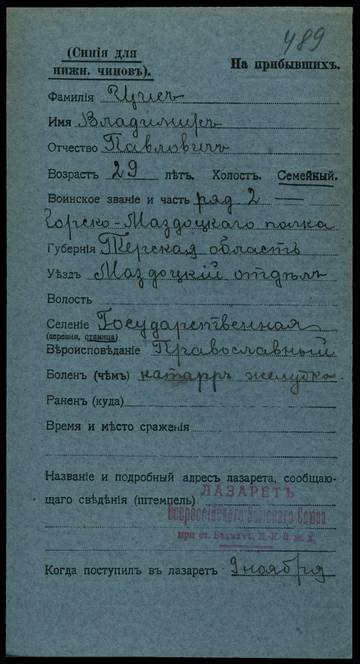 489
(Синія для
нижн. чиновъ).
На прибывшихъ.
Фамилія Цисъ
Имя Владимиръ
Отчество Павловичъ
Возрастъ 29 лѣтъ. Холостъ. Семейный.
Воинское званіе и часть ряд 2 —
Горско-Маздоцкаго полка
Губернія Терская область
Уѣздъ Маздоцкій отдѣлъ
Волость
Селеніе Государственная
(деревня, станица)
Вѣроисповѣданіе Православный
Боленъ (чѣмъ) катарръ желудка
Раненъ (куда)
Время и мѣсто сраженія
Названіе и подробный адресъ лазарета, сообщаю-
щаго свѣдѣнія (штемпель)
ЛАЗАРЕТЪ
Всероссійскаго Земскаго Союза
при ст.
Когда поступилъ въ лазаретъ 9 ноября